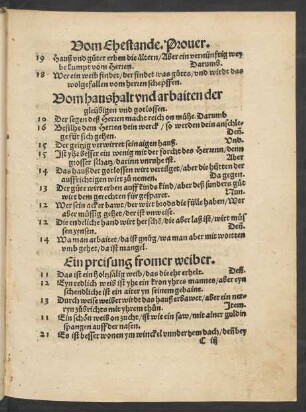 Vom Ehestande. Prouer.
19 Hauß vnd güter erben die ältern / Aber ein vernünfftig wey
be kumpt vom Herren. Darumb
18 Wer ein weib findet / der findet was gůts / vnd wirdt das
wolgefallen vom herren schepffen.
Vom haushalt vnd arbaiten der
gleübigen vnd gotlosen.
10 Der segen deß Herren macht reich on mühe. Darumb
16 Befilhe dem Herren dein werck / so werden dein anschle-
ge für sich gehen. Den̄.
15 Der geitzig verwirret sein aigen hauß. Vnd.
15 Ist yhe besser ein wenig mit der forcht des Herren, denn
grosser schatz / darinn vnruhe ist. Aber
14 Das hauß der gotlosen wirt vertilget / aber die hütten der
auffrichtigen wirt zů nemen. Da gegen.
13 Der güte wirt erben auff kinds kind / aber deß sünders gůt
wirt dem gerechten für gesparet. Nun.
12 Wer sein acker bawt / der wirt brods die fülle haben / Wer
aber müssig gehet / der ist vnweise.
12 Die endliche hand wirt herschē, die aber laß ist / wirt müs
sen zynsen. Den̄.
14 Wa man arbaitet / da ist gnůg / wa man aber mit worten
vmb gehet / da ist mangel.
Ein preisung fromer weiber.
11 Das ist ein holtzsälig weib / das die ehr erhelt. Deñ.
12 Eyn redlich weib ist yhr ein kron yhres mannes / aber eyn
schendliche ist ein aiter yn seinem gebaine.
13 Durch weise weiber wirdt das hauß erbawet / aber ein ner-
ryn zůbrichts mit yhrem thůn. Item.
11 Ein schön weib on zucht / ist wie ein saw / mit ainer guldin
spangen auff der nasen.
21 Es ist besser wonen ym winckel vnnder dem dach / deñ bey
C iij